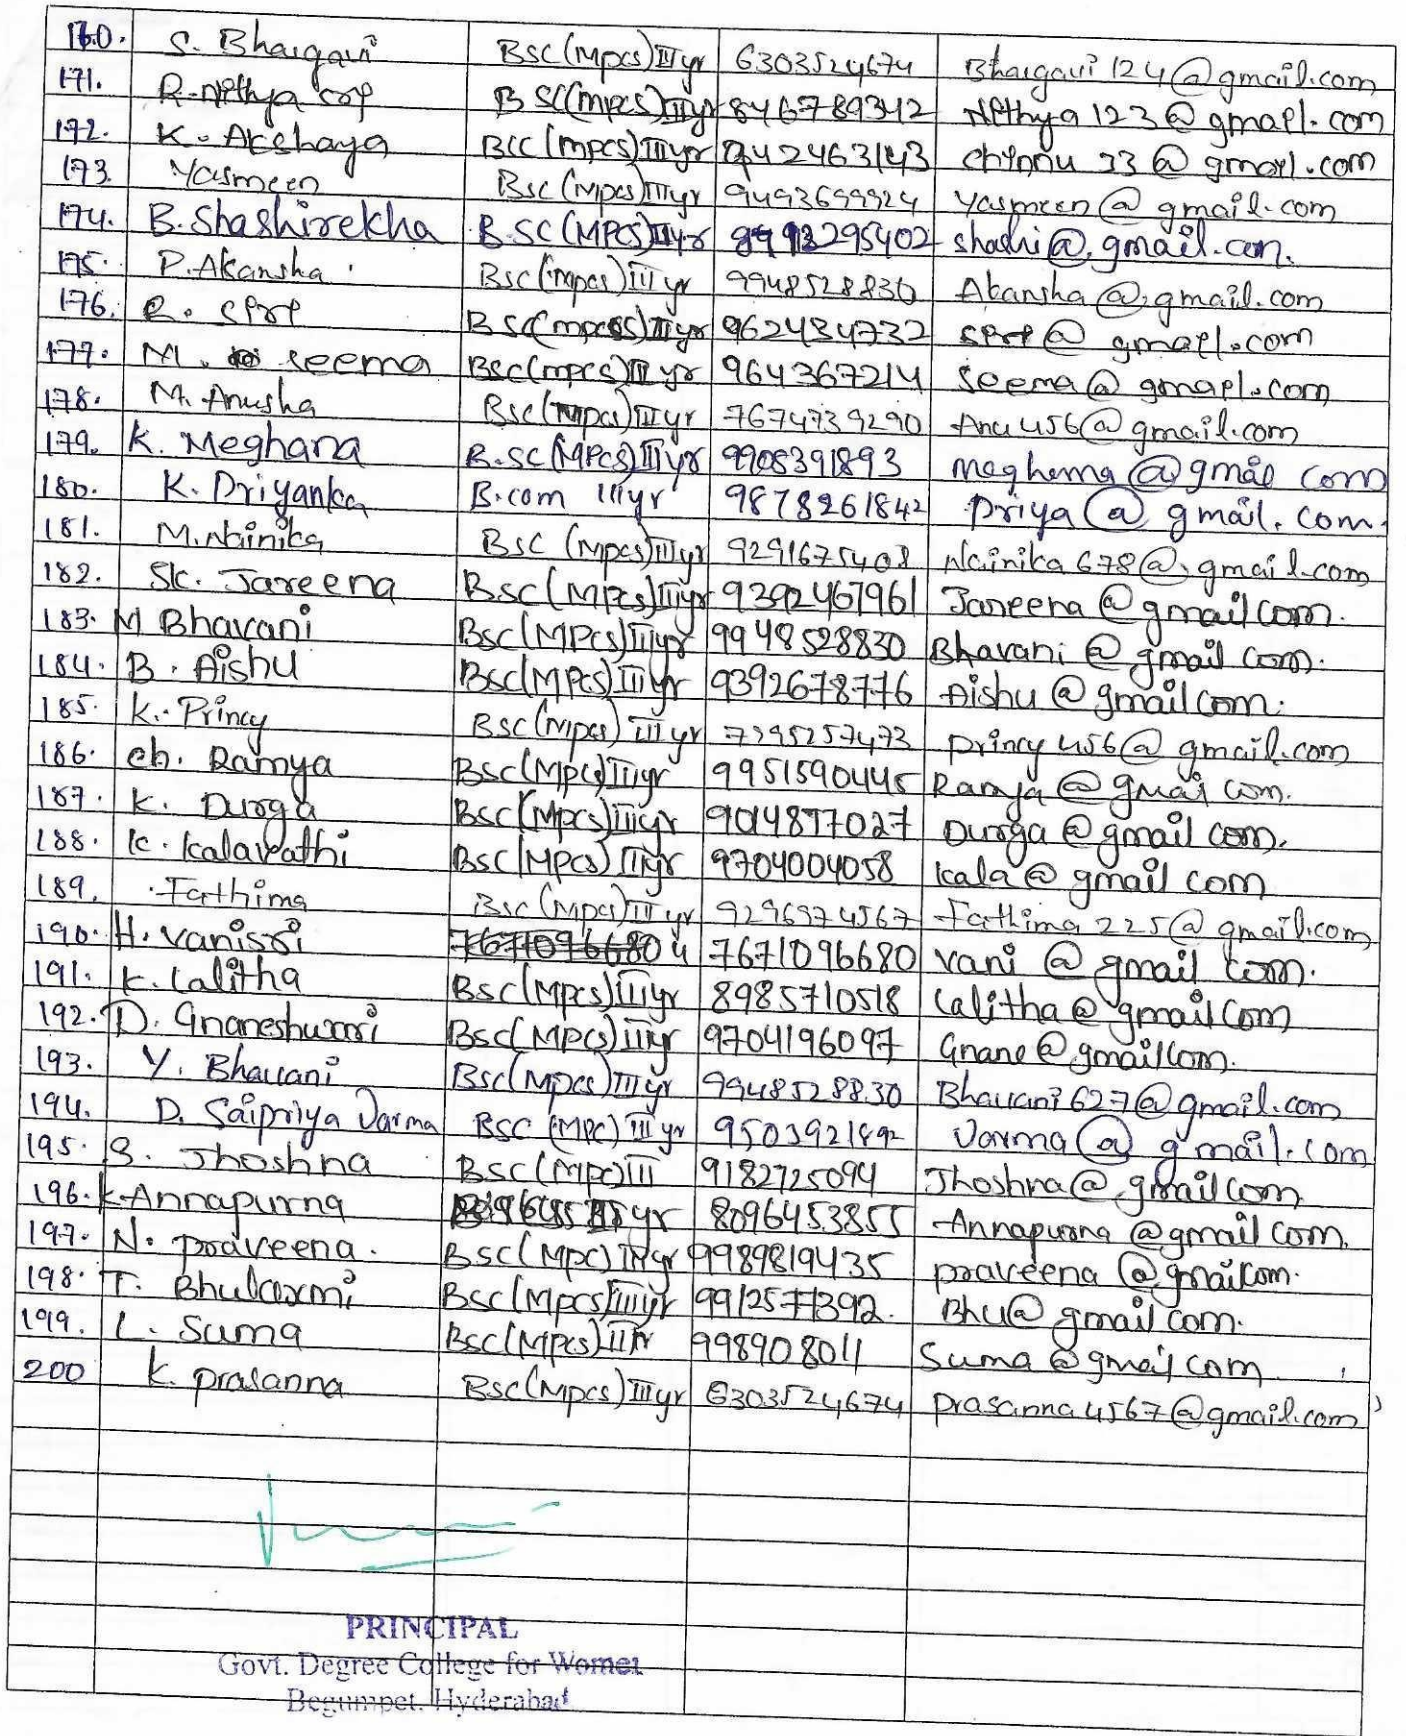 170. S. Bhargavi Bsc (Mpcs) III yr 6303524674 Bhargavi 124@gmail.com
171. R. Nithya sri B SC(mpcs) IIIyr 846789342 Nithya 123@gmail.com
172. K. Akshaya BSC (mpcs) IIIyr 9424631143 chinnu 33@gmail.com
173. Yasmeen Bsc (Mpcs) IIIyr 9493699924 Yasmeen@gmail.com
174. B. Shashirekha B.SC(MPCS) IIIyr shashi@gmail.com.
175. P. Akansha Bsc (mpcs) III yr 9948528830 Akansha@gmail.com
176. siri B sc(mpcs) IIIyr 962434732 siri@gmail.com
177. M. seema BSC(mpcs) III yr 964367214 seema@gmail.com
178. M. Anusha Bsc(mpcs) III yr 7674739290 Anu 456@gmail.com
179. K. Meghana B.SC(MPCS) III yr 9908391893 meghema@gmail com
180. K. Priyanka B.com IIIyr 9878261842 Priya@gmail.com.
181. M. Nainika BSC (Mpcs) IIIyr 9291675408 Nainika 678@gmail.com
182. SK. Jareena BSC(MPCS) IIIyr 9392467961 Jareena@gmail com.
183. M Bhavani BSC(MPCS) IIIyr 9948528830 Bhavani@gmail com.
184. B. Aishu BSC(MPCS) IIIyr 9392678776 Aishu@gmail com.
185. K. Princy Bsc (Mpcs) III yr 7295257473 princy 456@gmail.com
186. ch. Ramya BSC(MPCS) IIIyr 9951590445 Ramya@gmail com.
187. K. Durga BSC(MPCS) IIIyr 9014877027 Durga@gmail com.
188. K. Kalavathi BSC(MPCS) IIIyr 9704004058 kala@gmail com
189. Fathima Bsc (Mpcs) III yr 9296974567 Fathima 225@gmail.com
190. H. Vanisri 7671096680 vani@gmail com.
191. K. Lalitha BSC(MPCS) IIIyr 8985710518 Lalitha@gmail com
192. D. Gnaneshwari BSC(MPCS) IIIyr 9704196097 Gnane@gmail com.
193. Y. Bhavani Bsc(Mpcs) IIIyr 9948528830 Bhavani 627@gmail.com
194. D. Saipriya Varma BSC (MPC) III yr 9503921892 Varma@gmail.com
195. S. Jhoshna BSC(MPC) III 9182725094 Jhoshna@gmail com
196. K. Annapurna yr 8096453855 Annapurna@gmail com.
197. N. praveena. BSC(MPC) IIIyr 9989819435 praveena@gmail com.
198. T. Bhulaxmi BSC(MPCS) IIIyr 9912577392. Bhu@gmail com.
199. L. Suma BSC(MPCS) IIIyr 998908011 Suma@gmail com
200 K. prasanna Bsc(Mpcs) IIIyr 6303524674 prasanna4567@gmail.com
PRINCIPAL
Govt. Degree College for Women
Begumpet, Hyderabad